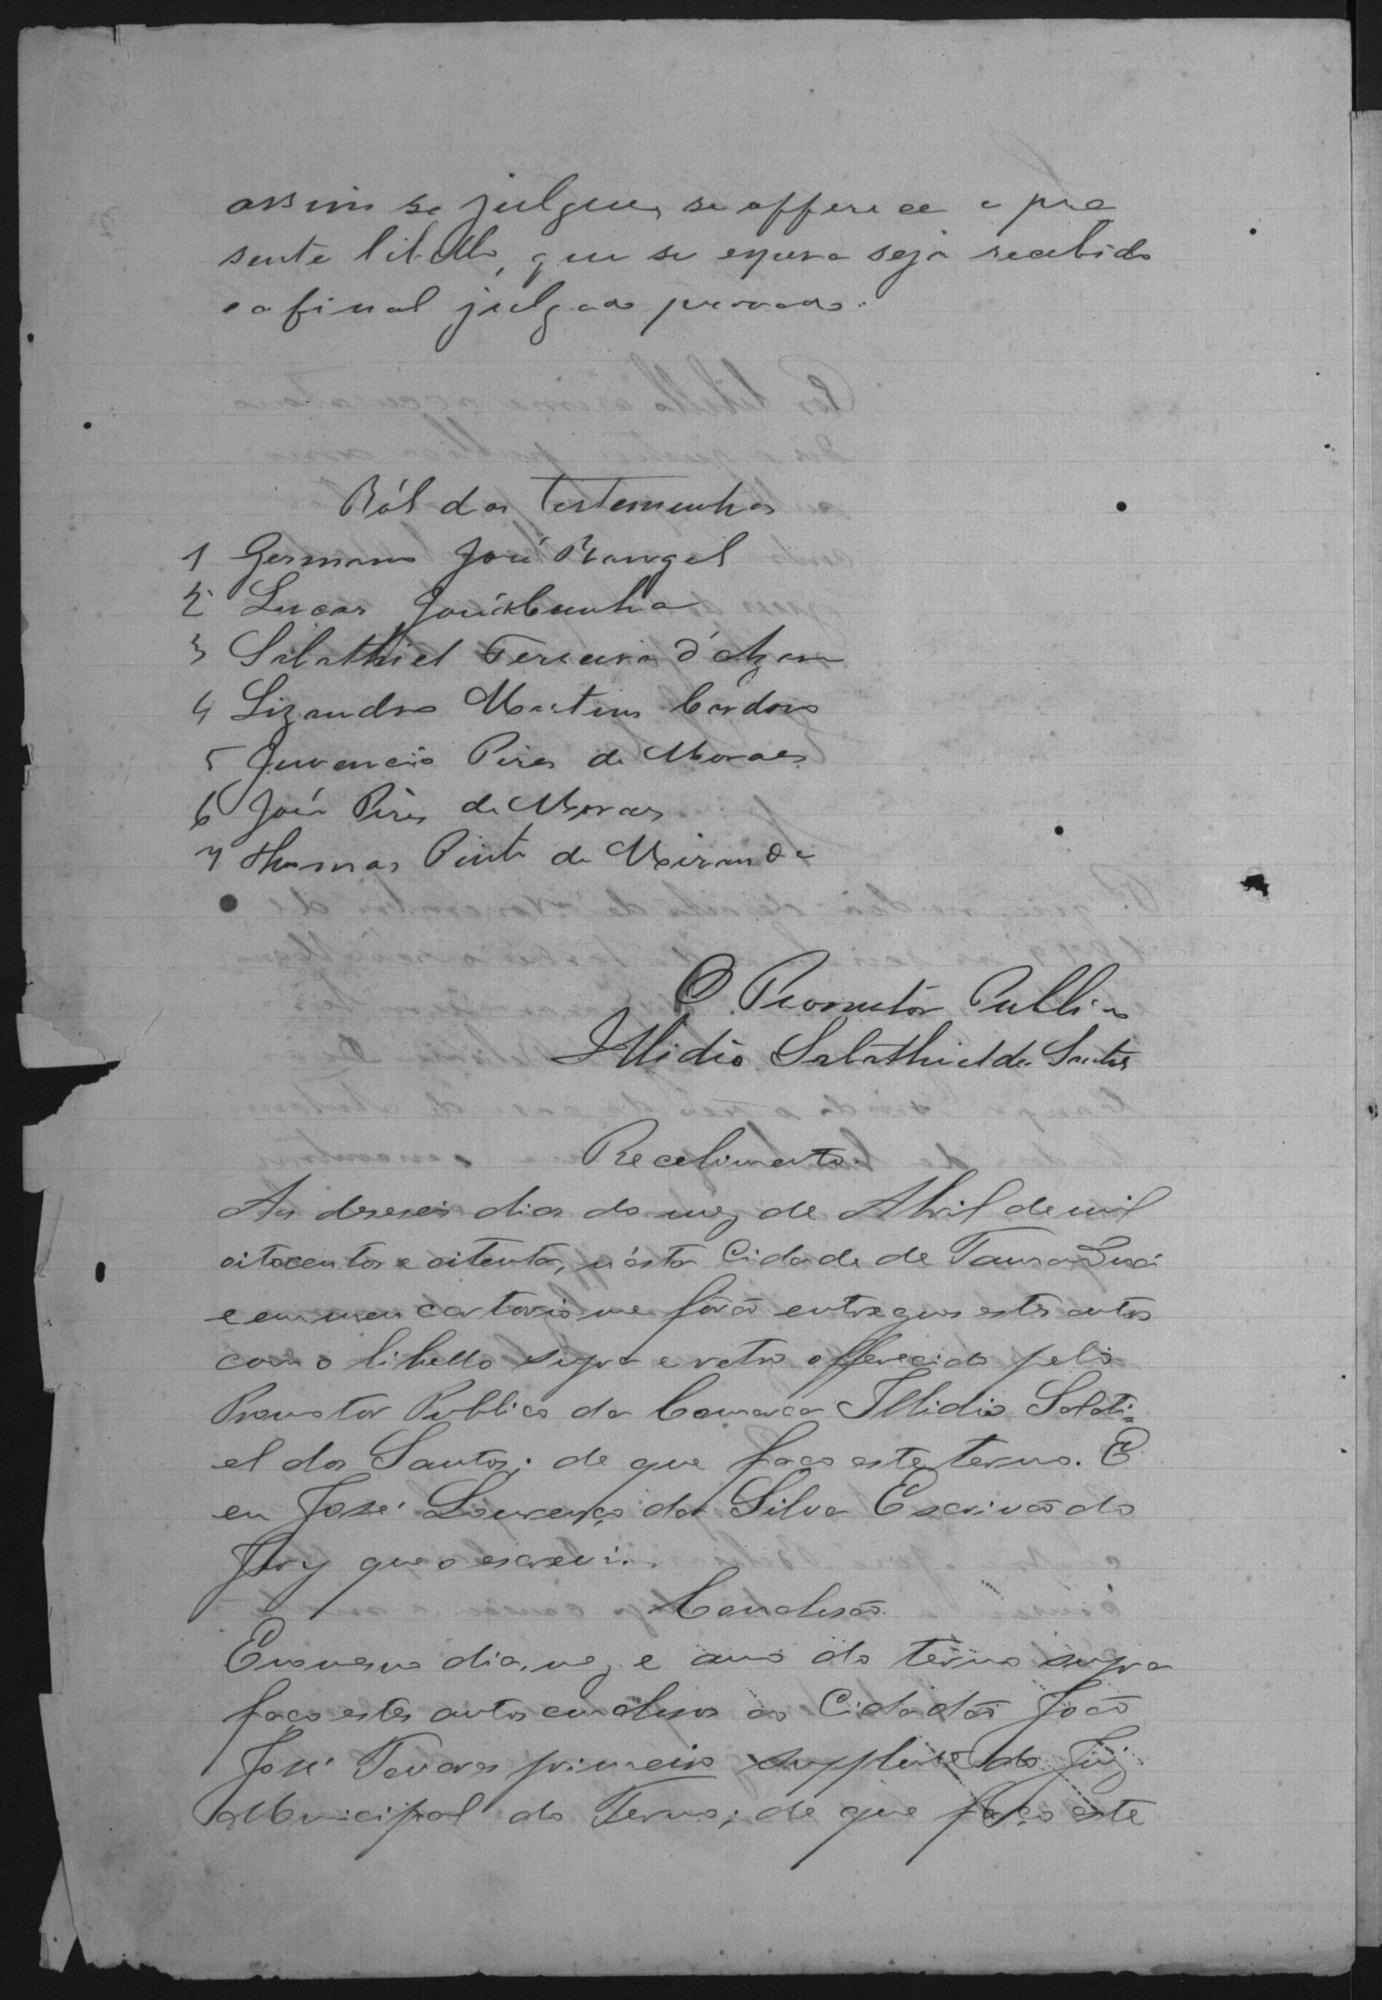 assim se julgue, se offerece o pre
sente libello, que se espera seja recebido
e afinal julgado provado.
Ról das Testemunhas
1 Germano José Rangel
2 Lucas José da Cunha
3 Salathiel Ferreira d'
4 Lizandro Martins Cardoso
5 Juvencio Pires de Moraes
6 José Pires de Moraes
7 Thomas Pinto de Miranda
O Promotor Publico
Illidio Salathiel dos Santos
Recebimento.
Aos deseseis dias do mez de Abril de mil
oitocentos e oitenta, n'esta Cidade de
e em meu cartorio me forão entregues estes autos
com o libello supra e retro offerecido pelo
Promotor Publico da Comarca Illidio Salati=
el dos Santos; de que faço este termo. E
eu José Lourenço da Silva Escrivão do
Jury que o escrevi.
Conclusão
E no mesmo dia, mez e anno do termo supra
faço estes autos conclusos ao Cidadão João
José Tavares primeiro supplente do Juiz
Municipal do Termo; de que faço este